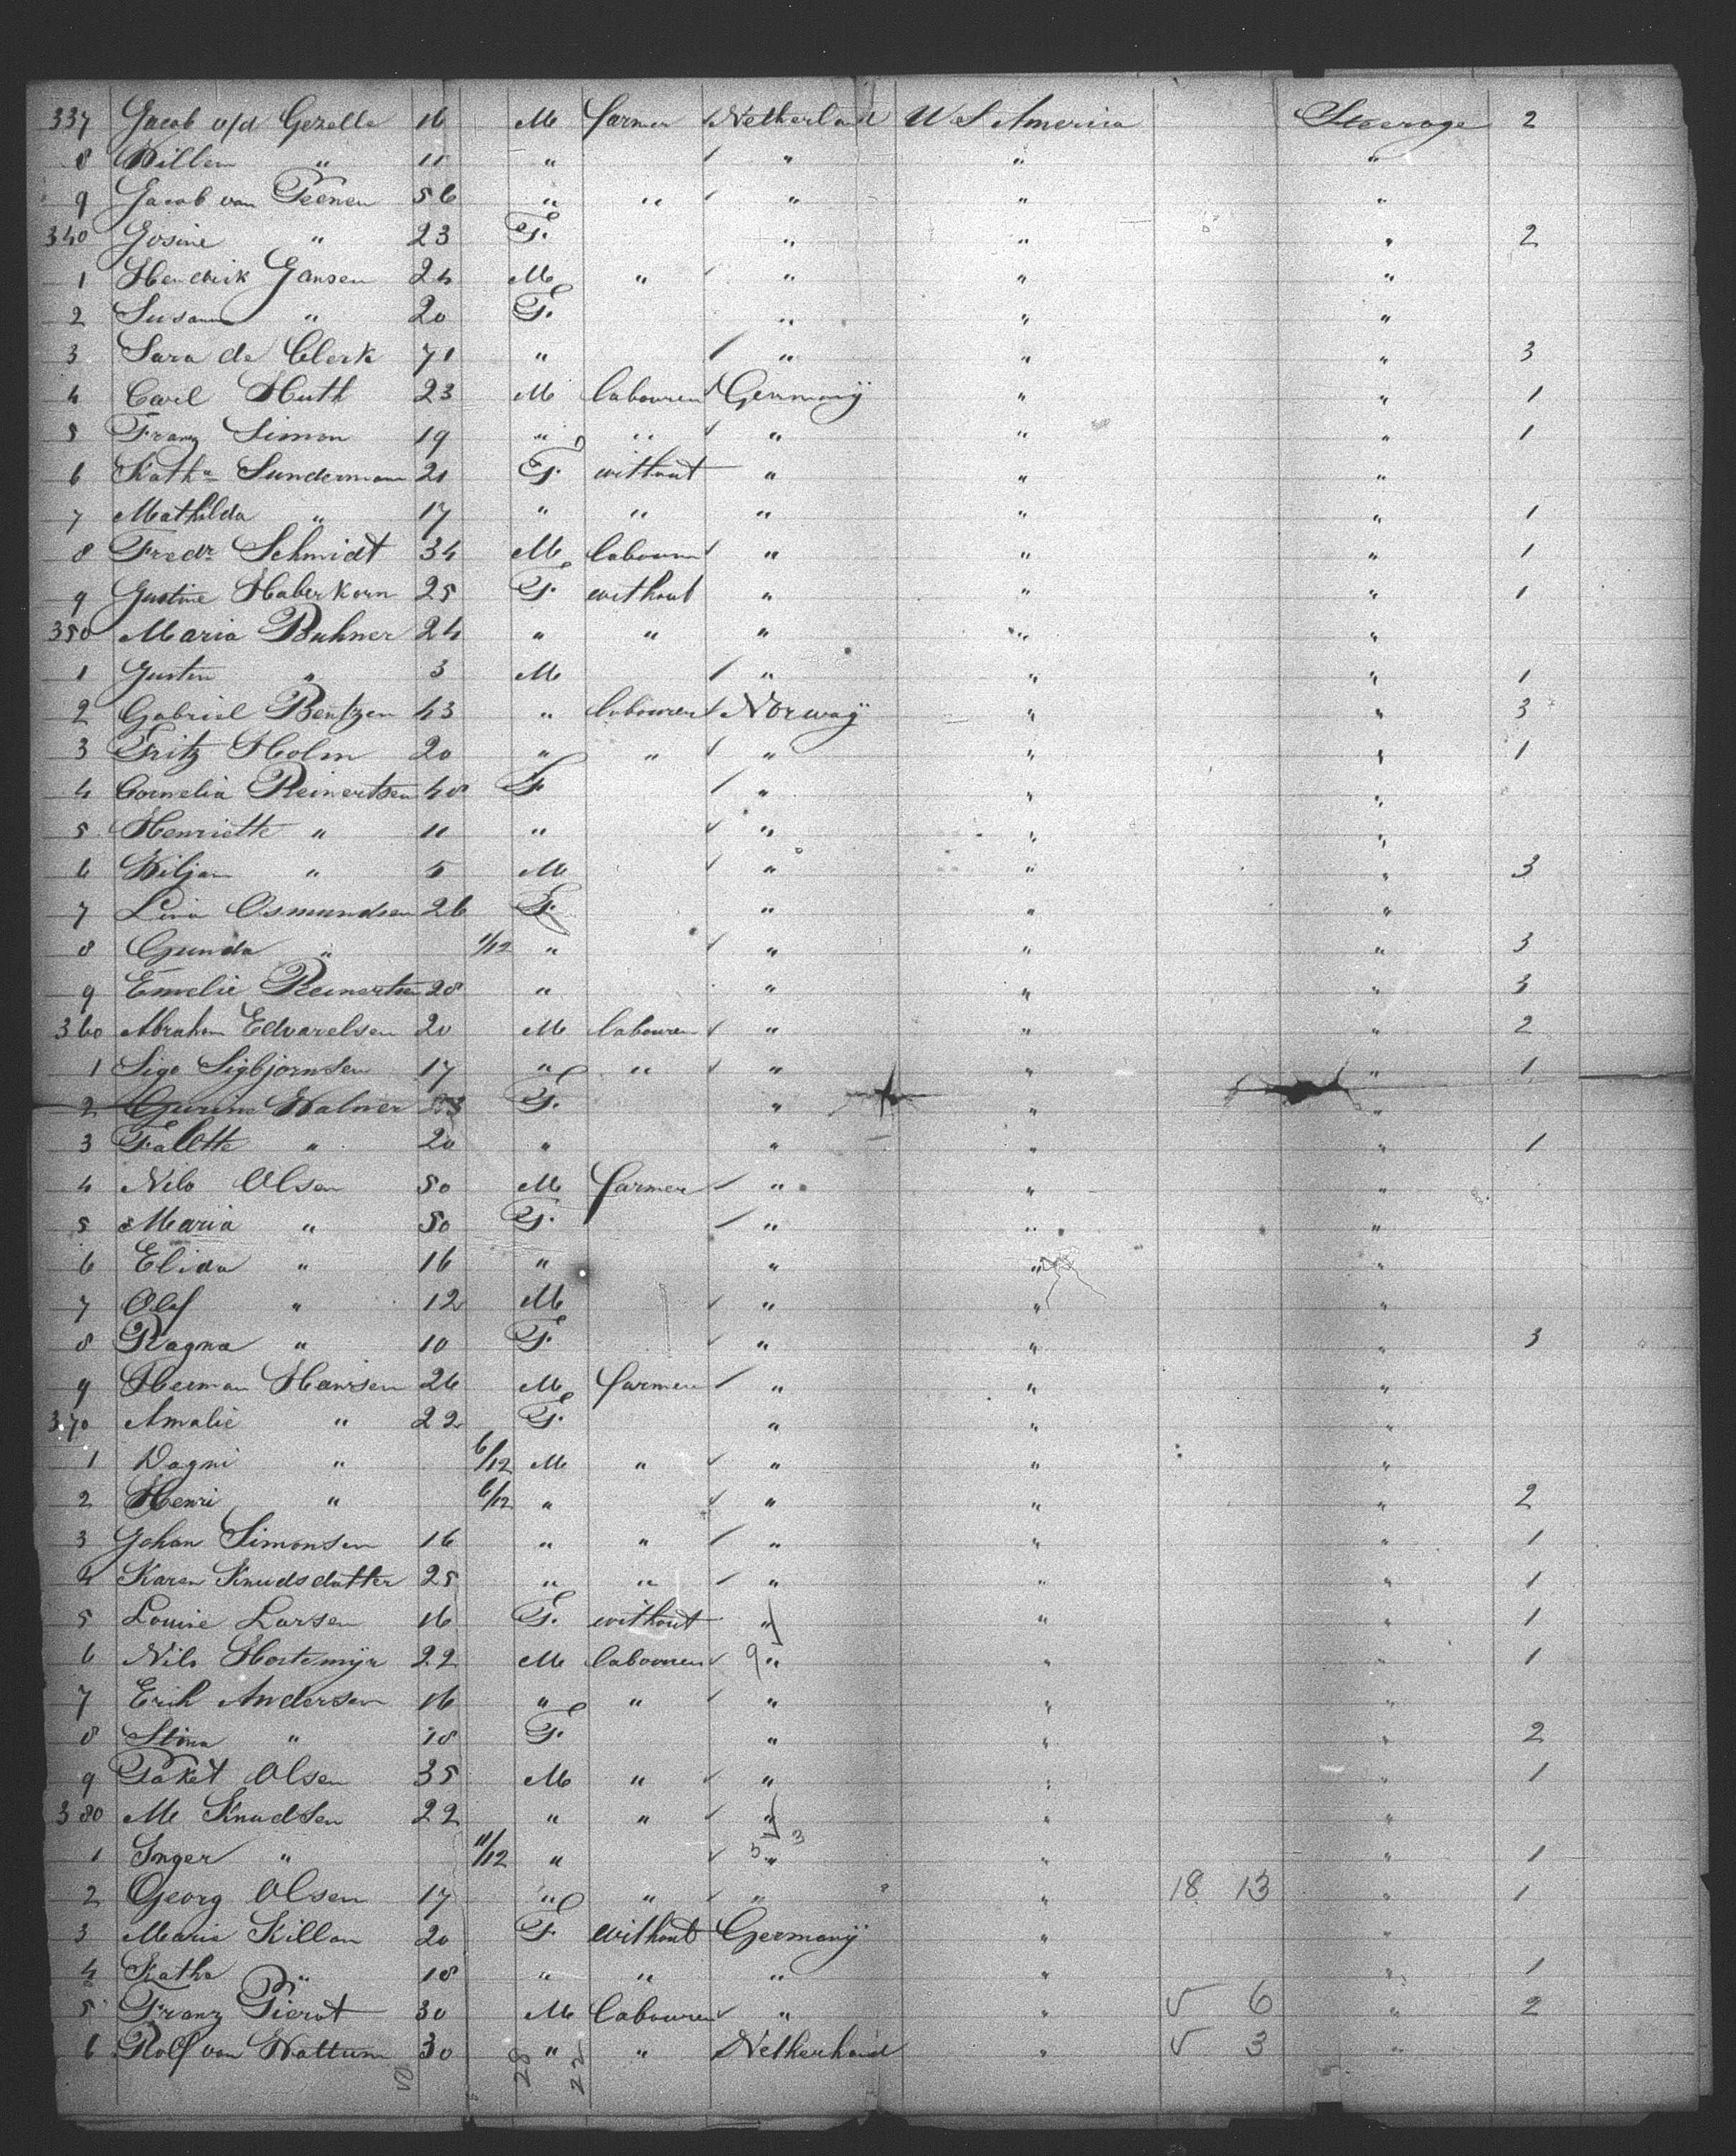 337 Jacob v/d Gezelle 16 M farmer Netherland U S America Steerage 2
8 Willem " 11 " " " "
9 Jacob van Peenen 56 " " " " "
340 Josine " 23 F. " " " 2
1 Hendrik Jansen 24 M " " " "
2 Susann " 20 F. " " "
3 Sara de Clerk 71 " " " " 3
4 Carl Huth 23 M labourer Germany " " 1
5 Franz Simon 19 " " " " " 1
6 Katha Sundermann 21 F. without " " "
7 Mathilda " 17 " " " " " 1
8 Fredr Schmidt 34 M labourer " " " 1
9 Justine Haberkorn 25 F. without " " " 1
350 Maria Buhner 24 " " " " "
1 Justin " 3 M " " " 1
2 Gabriel Bentzen 43 " labourer Norway " " 3
3 Fritz Holm 20 " " " " " 1
4 Cornelia Reinertsen 48 F " " "
5 Henriette " 11 " " " "
6 Kiljan " 5 M " " " 3
7 Lina Osmundsen 26 F. " " "
8 Gunda " 1/12 " " " " 3
9 Emelie Reinertsen 28 " " " " 3
360 Abraham Edvardsen 20 M labourer " " " 2
1 Sigo Sigbjornsen 17 " " " " " 1
2 Gurine Walner F. " " "
3 Falette " 20 " " " " 1
4 Nils Olsen 50 M farmer " " "
5 Maria " 50 F. " " "
6 Elida " 16 " " " "
7 Olef " 12 M " " "
8 Ragna " 10 F. " " " 3
9 Herman Hansen 26 M farmer " " "
370 Amalie " 22 F. " " "
1 Dagni " 6/12 M " " " "
2 Henri " 6/12 " " " " 2
3 Johan Simonsen 16 " " " " " 1
4 Karen Knudsdatter 25 " " " " " 1
5 Louise Larsen 16 F. without " " " 1
6 Nils Hortemyr 22 M labourer 9 " " " 1
7 Erik Andersen 16 " " " " "
8 Stina " 18 F. " " " 2
9 Taket Olsen 35 M " " " " 1
380 M Knudsen 22 " " " " "
1 Inger " 11/12 " 5 " 3 " " 1
2 Georg Olsen 17 " " " " 18 13 " 1
3 Maria Killan 20 F. without Germany " "
4 Katha " 18 " " " " " 1
5 Franz Pierot 30 M labourer " " 5 6 " 2
6 Rolf van Wattum 30 " " Netherland " 5 3 "
50 28 22